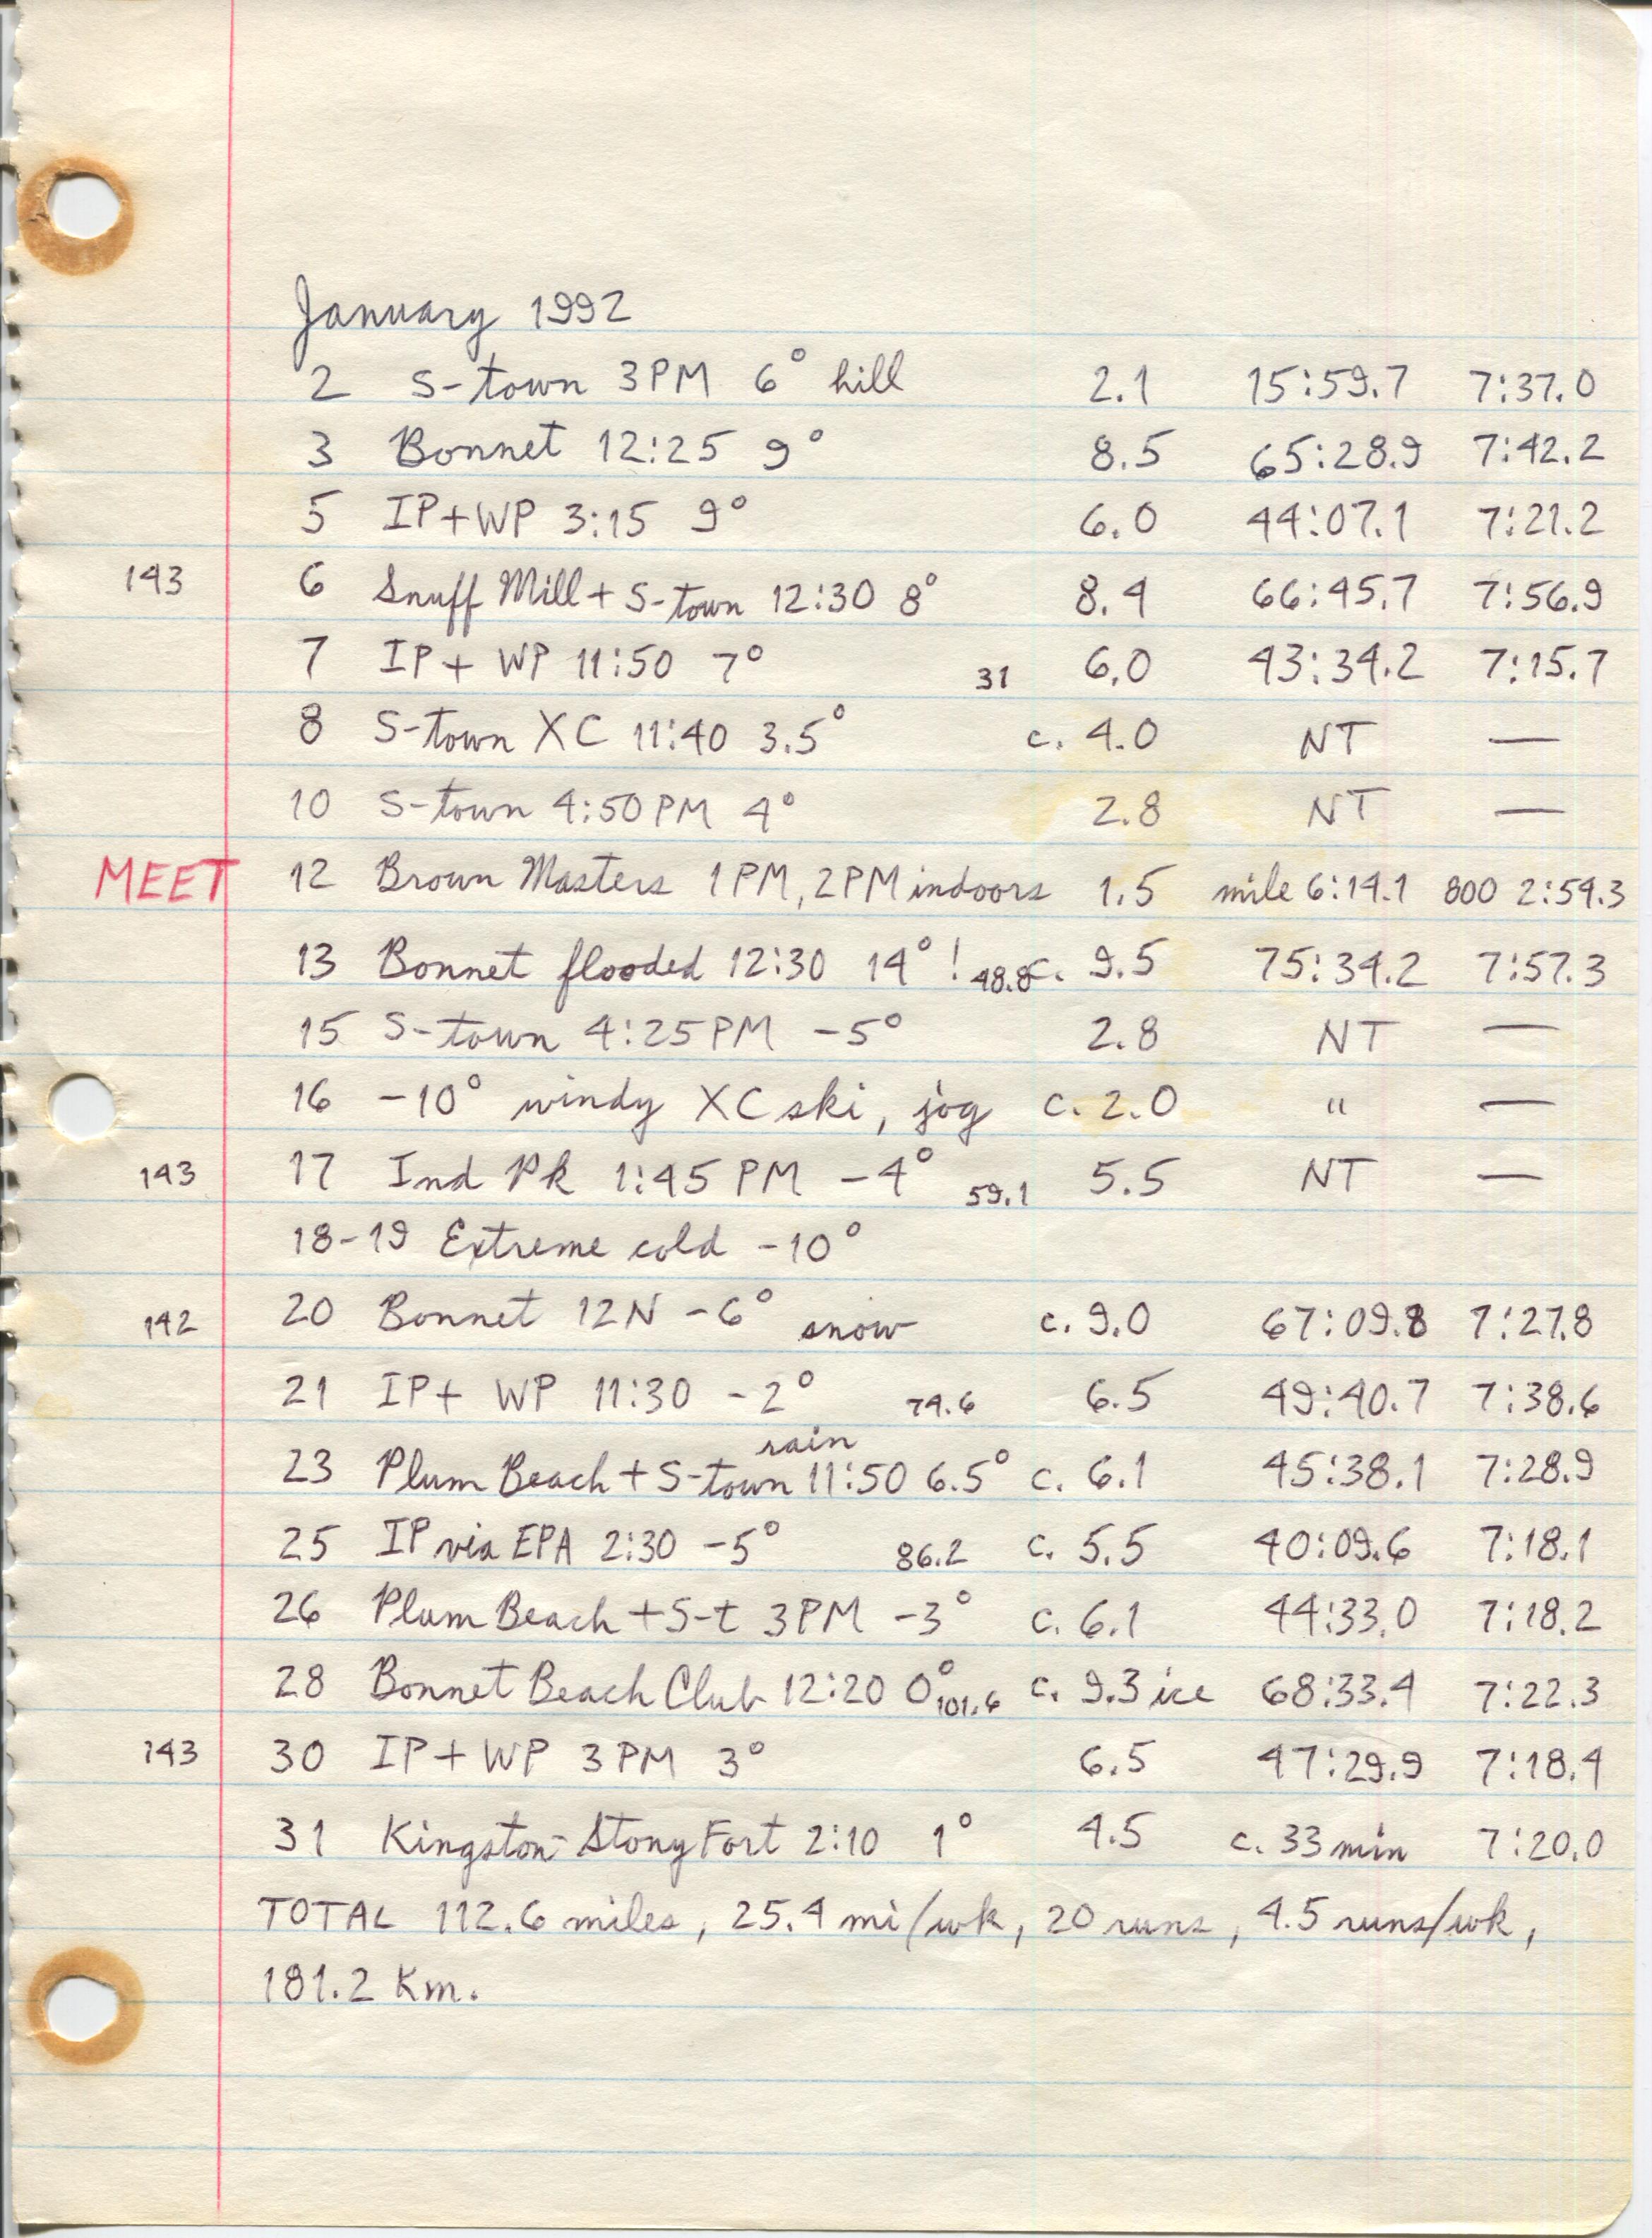 January 1992
2 S-town 3PM 6° hill 2.1 15:59.7 7:37.0
3 Bonnet 12:25 9° 8.5 65:28.9 7:42.2
5 IP+WP 3:15 9° 6.0 44:07.1 7:21.2
143 6 Snuff Mill + S-town 12:30 8° 8.4 66:45.7 7:56.9
7 IP+ WP 11:50 7° 31 6.0 43:34.2 7:15.7
8 S-town XC 11:40 3.5° c. 4.0 NT —
10 S-town 4:50PM 4° 2.8 NT —
MEET 12 Brown Masters 1PM, 2PM indoors 1.5 mile 6:14.1 800 2:54.3
13 Bonnet flooded 12:30 14° ! 48.8 c. 9.5 75:34.2 7:57.3
15 S-town 4:25PM -5° 2.8 NT —
16 -10° windy XC ski, jog c. 2.0 " —
143 17 Ind Pk 1:45 PM -4° 59.1 5.5 NT —
18-19 Extreme cold -10°
142 20 Bonnet 12N -6° snow c. 9.0 67:09.8 7:27.8
21 IP+ WP 11:30 -2° 74.6 6.5 49:40.7 7:38.6
23 Plum Beach + S-town rain 11:50 6.5° c. 6.1 45:38.1 7:28.9
25 IP via EPA 2:30 -5° 86.2 c. 5.5 40:09.6 7:18.1
26 Plum Beach + S-t 3PM -3° c. 6.1 44:33.0 7:18.2
28 Bonnet Beach Club 12:20 0° 101.6 c. 9.3 ice 68:33.4 7:22.3
143 30 IP + WP 3 PM 3° 6.5 47:29.9 7:18.4
31 Kingston-Stony Fort 2:10 1° 4.5 c. 33 min 7:20.0
TOTAL 112.6 miles, 25.4 mi/wk, 20 runs, 4.5 runs/wk,
181.2 Km.